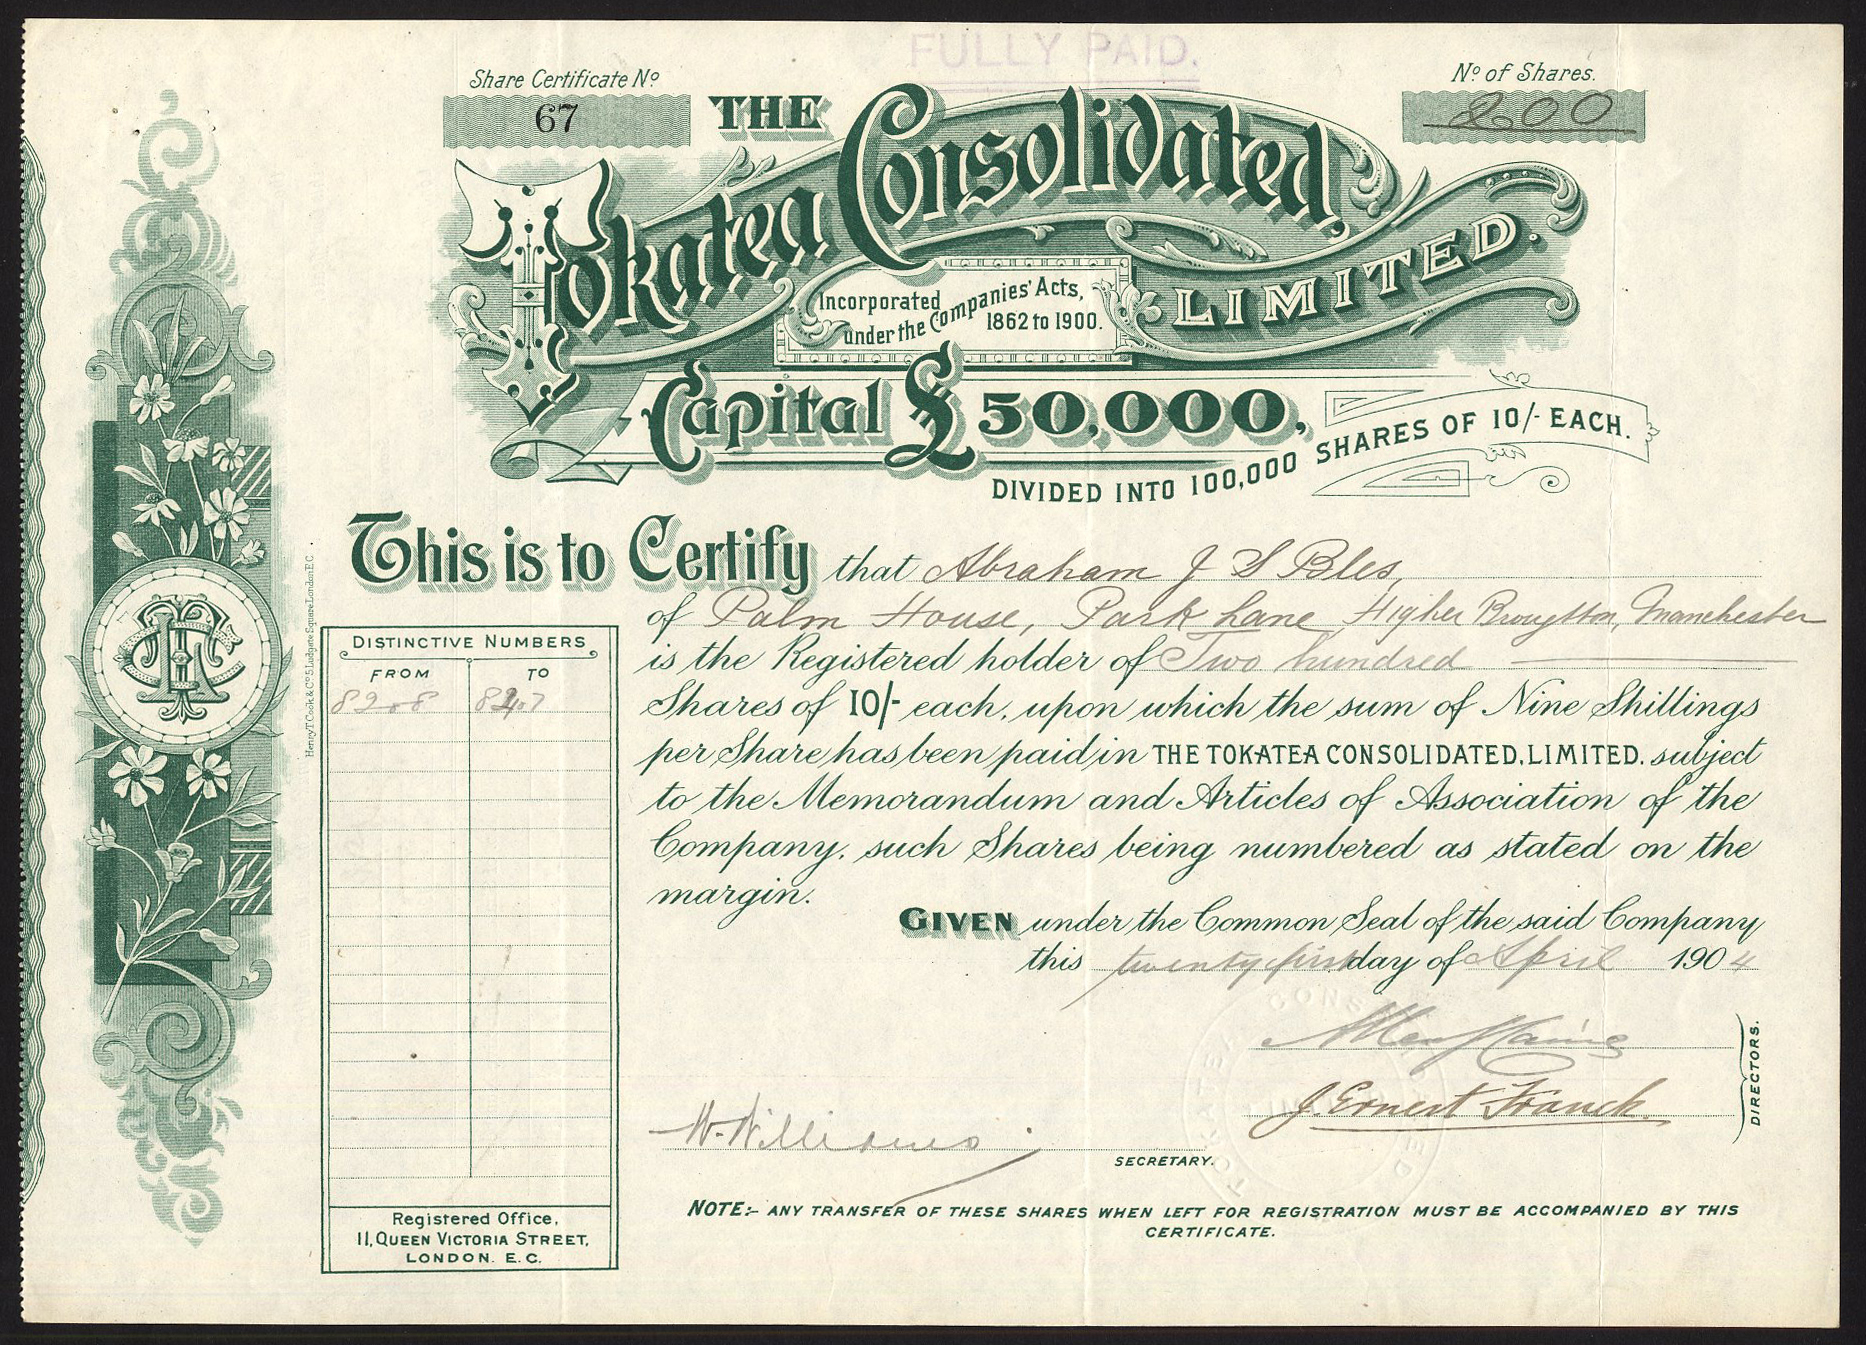 FULLY PAID.
Share Certificate No.
67
No. of Shares.
200
THE Tokatea Consolidated, LIMITED.
Incorporated under the Companies' Acts, 1862 to 1900.
Capital £50,000,
DIVIDED INTO 100,000 SHARES OF 10/- EACH.
This is to Certify that Abraham J S Bles,
of Palm House, Park Lane, Higher Broughton, Manchester
is the Registered holder of Two hundred
Shares of 10/- each, upon which the sum of Nine Shillings
per Share has been paid in THE TOKATEA CONSOLIDATED, LIMITED. subject
to the Memorandum and Articles of Association of the
Company, such Shares being numbered as stated on the
margin.
GIVEN under the Common Seal of the said Company
this twenty first day of April 1904
DISTINCTIVE NUMBERS
FROM TO
Henry T. Cook & Co. 5, Ludgate Square, London E.C.
J. Ernest Franck
DIRECTORS.
W. Williams
SECRETARY.
TOKATEA CONS
NOTE:- ANY TRANSFER OF THESE SHARES WHEN LEFT FOR REGISTRATION MUST BE ACCOMPANIED BY THIS
CERTIFICATE.
Registered Office,
11, QUEEN VICTORIA STREET,
LONDON. E.C.